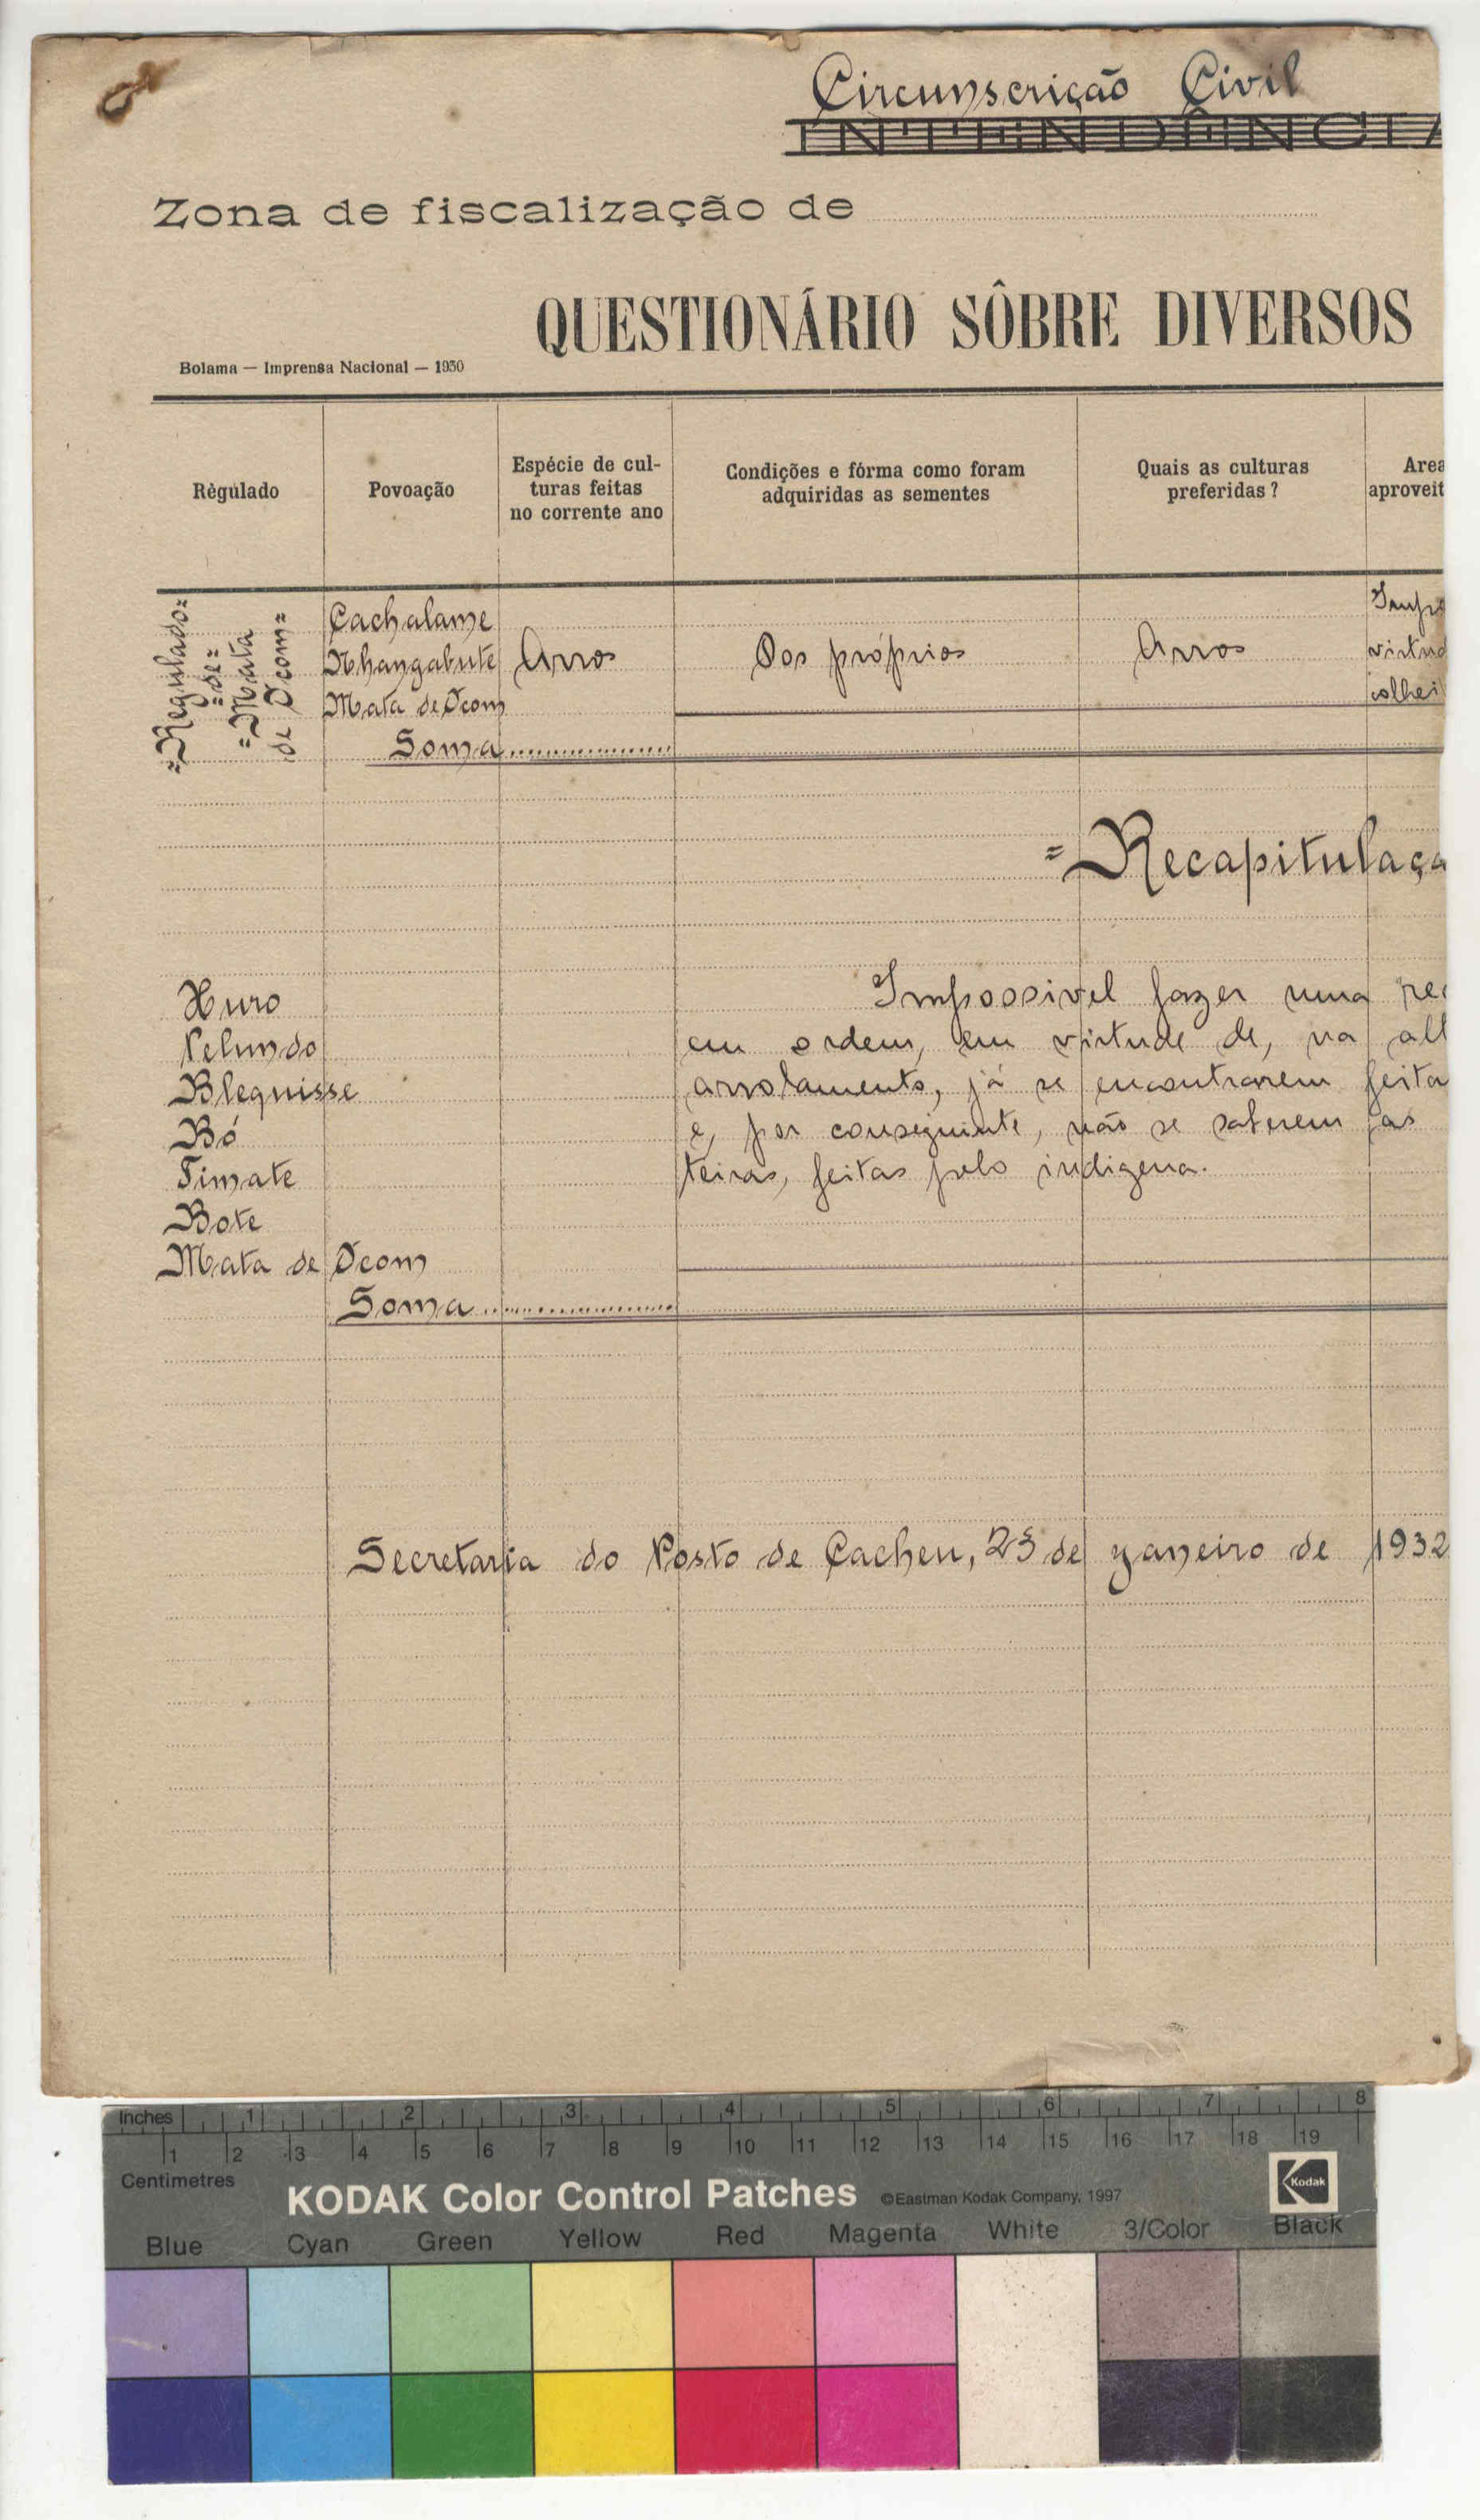 Circunscrição Civil
INTENDÊNCIA
Zona de fiscalização de
QUESTIONÁRIO SÔBRE DIVERSOS
Bolama — Imprensa Nacional — 1930
Règulado
Povoação
Espécie de cul-
turas feitas
no corrente ano
Condições e fórma como foram
adquiridas as sementes
Quais as culturas
preferidas?
Area
aproveit
=Regulado=
=de=
=Mata
de Ocom=
Cachalame
Nhangabute
Mata de Ocom
Arros
Dos próprios
Arros
virtud
colhei
Soma
=Recapitulaça
Impossivel fazer uma
em ordem, em virtude de, na alt
arrolamento, já se encontrarem feita
e, por conseguinte, não se saberem as
teiras, feitas pelo indigena.
Xuro
Pelundo
Blequisse
Bó
Timate
Bote
Mata de Ocom
Soma
Secretaria do Posto de Cacheu, 23 de janeiro de 1932
Inches 1 2 3 4 5 6 7 8
1 2 3 4 5 6 7 8 9 10 11 12 13 14 15 16 17 18 19
Centimetres
KODAK Color Control Patches ©Eastman Kodak Company, 1997 Kodak
Blue Cyan Green Yellow Red Magenta White 3/Color Black